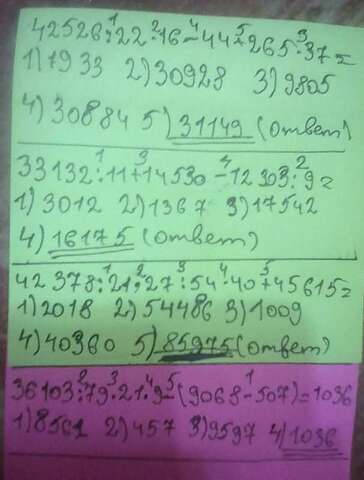 42526:22·16-44+265·37=
1)1933 2)30928 3)9805
4)30884 5)31149(ответ)
33132:11+14530-12303:9=
1)3012 2)1367 3)17542
4)16175(ответ)
42378:21·27:54·40+45615=
1)2018 2)54486 3)1009
4)40360 5)85975(ответ)
36103:79·21:9-(9068-507)=1036
1)8561 2)457 3)9597 4)1036